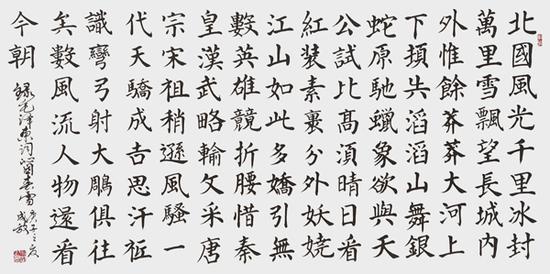 北國風光千里冰封
萬里雪飄望長城内
外惟餘莽莽大河上
下頓失滔滔山舞銀
蛇原馳蠟象欲與天
公試比高須晴日看
紅装素裹分外妖嬈
江山如此多嬌引無
數英雄競折腰惜秦
皇漢武略輸文采唐
宗宋祖稍遜風騷一
代天驕成吉思汗祗
識彎弓射大鵰俱往
矣數風流人物還看
今朝
錄毛澤東詞沁園春雪
庚子之夏